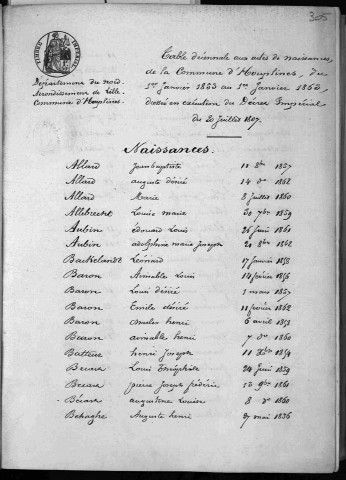 305
TIMBRE IMPÉRIAL
Département du Nord
Arrondissement de Lille
Commune d'Houplines
Table décennale aux actes de naissances,
de la Commune d'Houplines, du
1er Janvier 1853 au 1er Janvier 1863,
dressée en exécution du Décret Impérial
du 20 Juillet 1807.
Naissances.
Allard Jean baptiste 11 8bre 1857
Allard auguste désiré 14 do 1862
Allard Marie 8 Juillet 1860
Allebrecht Louise marie 20 7bre 1859
Aubin édouard Louis 26 Juin 1861
Aubin adolphine marie Joseph 1862
Backelandt Léonard 17 Janvier 1858
Baron Aimable Louis 14 février 1856
Baron Louis désiré 1 mars 1857
Baron Emile désiré 11 février 1862
Baron henri 6 avril 1853
Baron aimable henri 7 do 1860
Batteur henri Joseph 11 1854
Becart Louis Théophile 24 Juin 1859
Becart pierre Joseph frédéric 10 9bre 1861
Bécart augustine Louise 8 do 1860
Behaghe Auguste henri 27 mai 1856